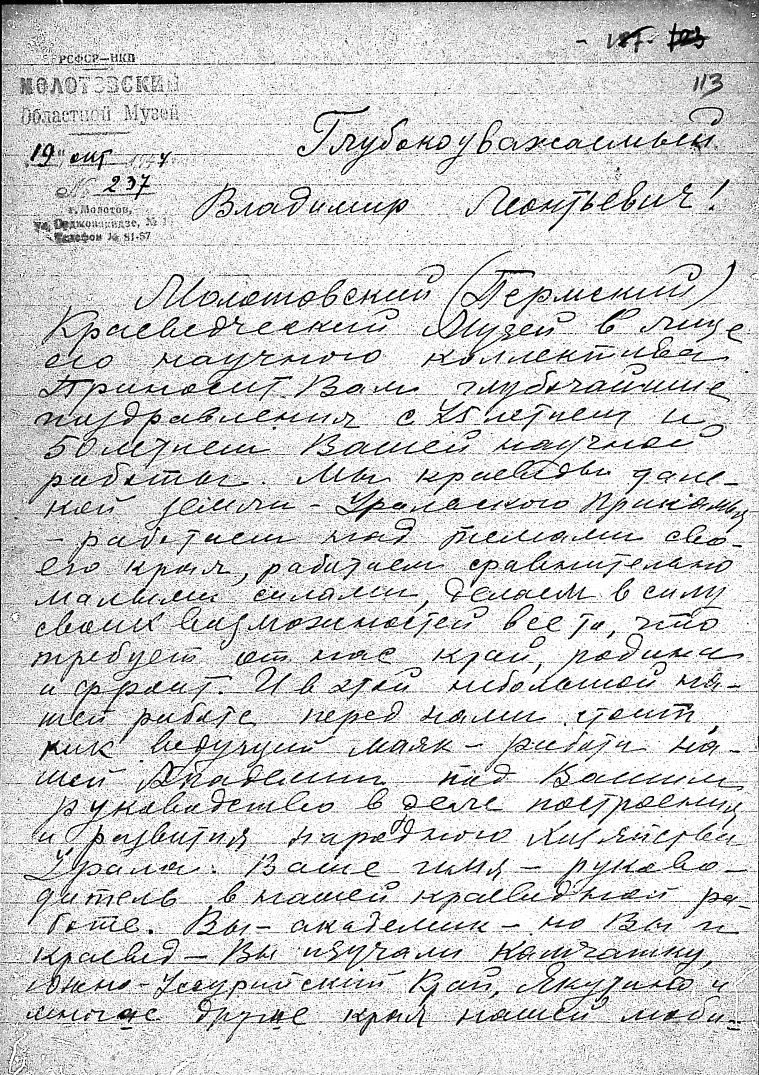 РСФСР—НКП
МОЛОТОВСКИЙ
Областной Музей
"19" окт 1944
№ 237
г. Молотов,
ул. Орджоникидзе, №
Телефон № 31-57
113
Глубокоуважаемый
Владимир Леонтьевич!
Молотовский (Пермский)
Краеведческий Музей в лице
его научного коллектива
Приносит Вам глубочайшие
поздравления с 75 летием и
50 летием Вашей научной
работы. Мы краеведы дале-
кой земли - Уральского Прикамья
- работаем над темами сво-
его края, работаем сравнительно
малыми силами, делаем в силу
своих возможностей все то, что
требует от нас край, родина
и фронт. И в этой небольшой на-
шей работе перед нами стоит,
как ведущий маяк - работа на-
шей Академии под Вашим
руководство в деле построения
и развития народного хозяйства
Урала. Ваше имя - руково-
дитель в нашей краеведной ра-
боте. Вы - академик - но Вы и
краевед - Вы изучали Камчатку,
Южно-Уссурийский Край, Якутию и
многие другие края нашей люби-